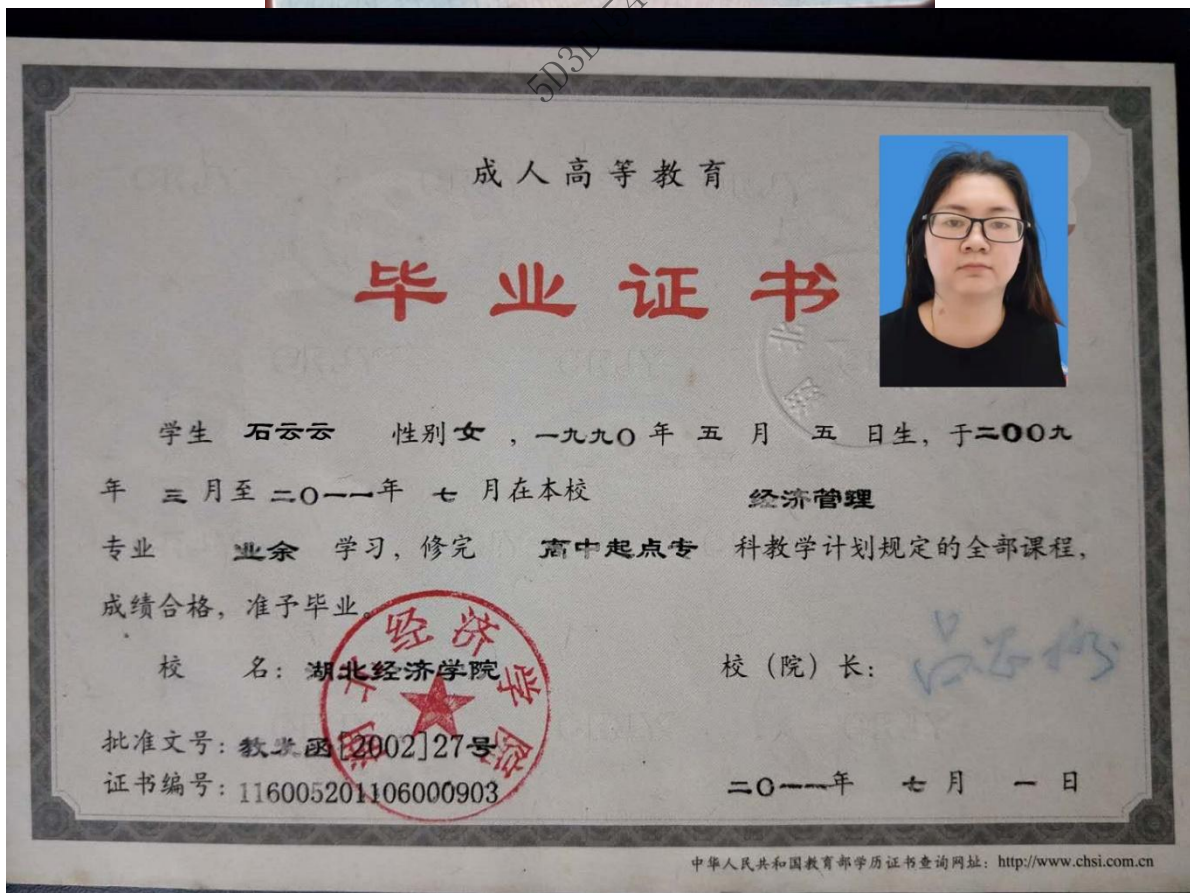 5D3B
成人高等教育
毕业证书
学生 石云云 性别 女 ，一九九〇 年 五 月 五 日生，于二〇〇九
年 三 月至 二〇一一年 七 月在本校 经济管理
专业 业余 学习，修完 高中起点专 科教学计划规定的全部课程，
成绩合格，准予毕业。
校 名：湖北经济学院 校（院）长：
批准文号：教发函[2002]27号
证书编号：116005201106000903 二〇一一年 七 月 一 日
湖北经济学院
中华人民共和国教育部学历证书查询网址：http://www.chsi.com.cn